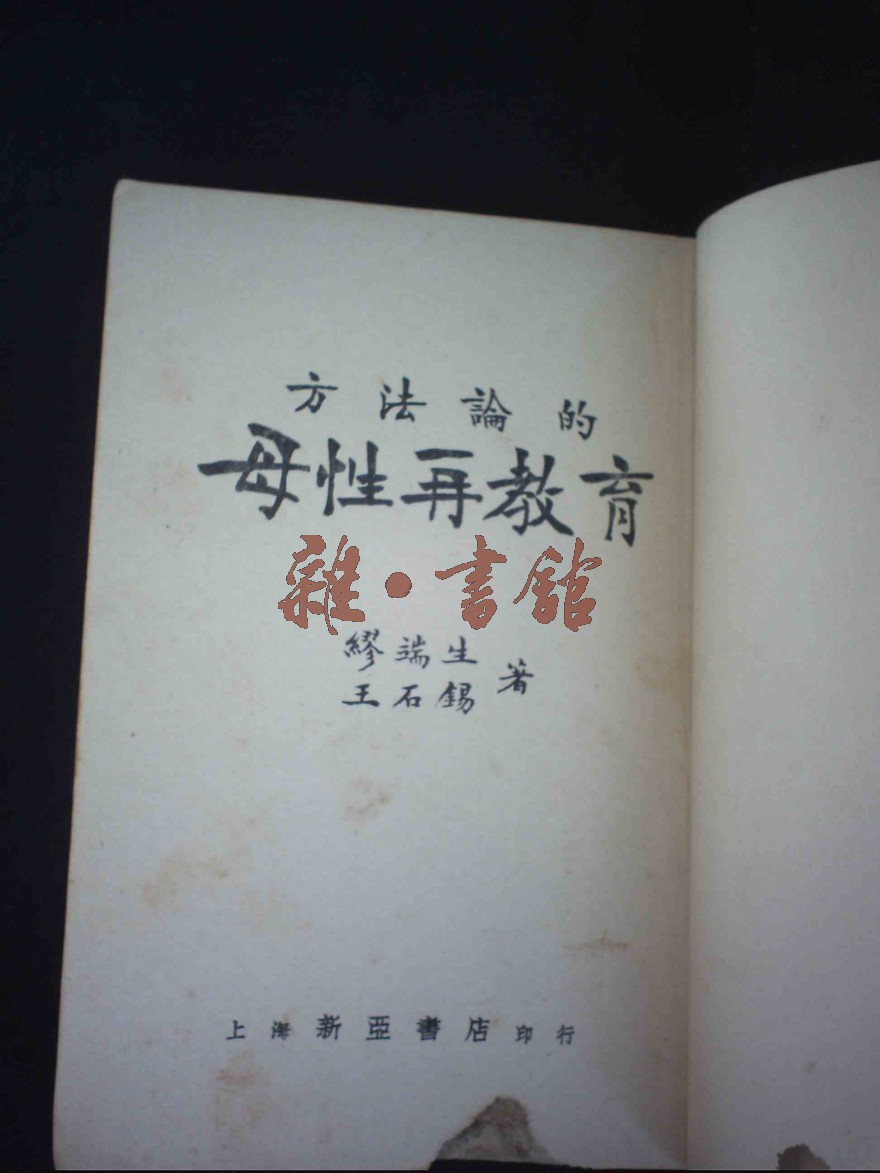 方法論的
母性再教育
雜•書館
繆端生
王石錫 著
上海新亞書店印行